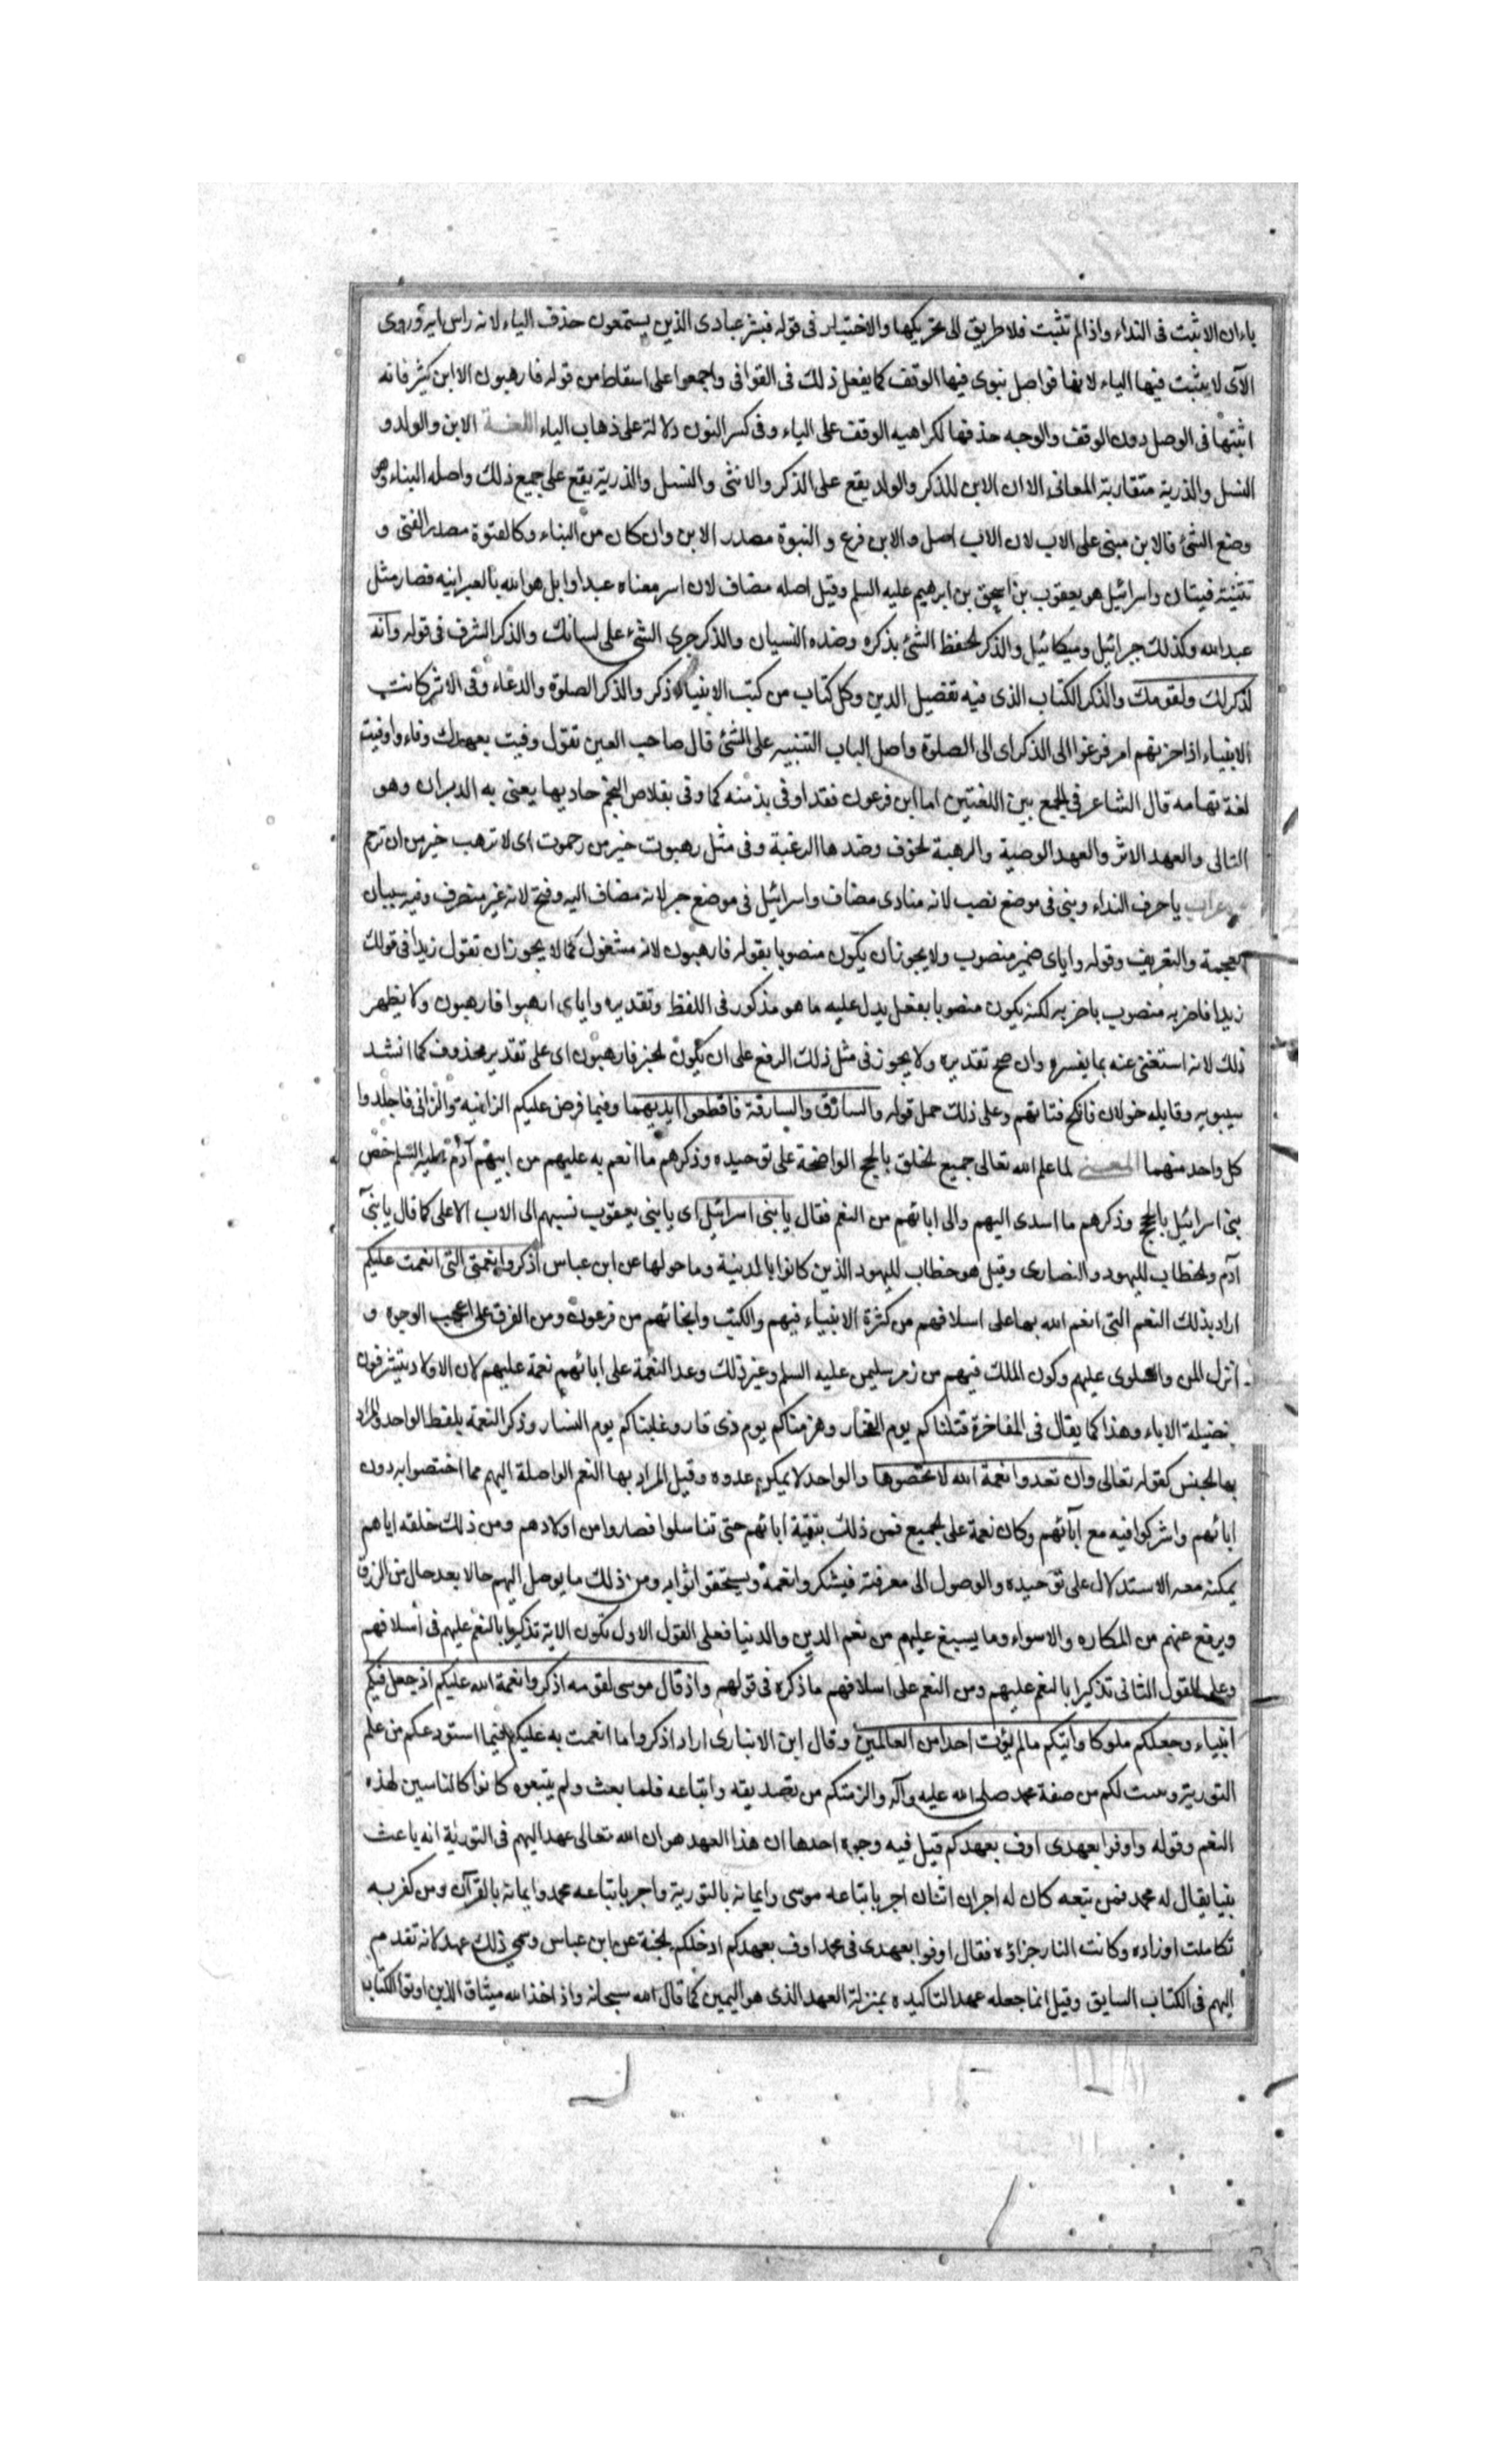 ياءان الا تثبت فى النداء واذا لم تثبت فلا طريق الى تحريكها والاختيار فى قوله فبشر عبادى الذين يستمعون حذف الياء لانه راس اية وروى
الآى لا يثبت فيها الياء لانها فواصل ينوى فيها الوقف كما يفعل ذلك فى القوافى واجمعوا على اسقاط من قوله فارهبون الا ابن كثير فانه
اثبتها فى الوصل دون الوقف والوجه حذفها لكراهيه الوقف على الياء وفى كسر النون دلالة على ذهاب الياء اللغـة الابن والولد و
النسل والذرية متقاربة المعانى الا ان الابن للذكر والولد يقع على الذكر والانثى والنسل والذرية يقع على جميع ذلك واصله البناء وهو
وضع الشئ فالابن مبنى على الاب لان الاب اصل والابن فرع و النبوة مصدر الابن وان كان من البناء وكالفتوة مصدر الفتى و
تثنيته فيتان واسرائيل هو يعقوب بن اسحق بن ابرهيم عليه السلم وقيل اصله مضاف لان اسر معناه عبد اوايل هو الله بالعبرانيه فصار مثل
عبد الله وكذلك جبرائيل وميكائيل والذكر لحفظ الشئ بذكره وضده النسيان والذكر جرى الشئ على لسانك والذكر الشرف فى قوله وانه
لذكر لك ولقومك والذكر الكتاب الذى فيه تفصيل الدين وكل كتاب من كتب الانبياء ذكر والذكر الصلوة والدعاء وفى الاثر كانت
الانبياء اذا حزبهم امر فزعوا الى الذكر اى الى الصلوة واصل الباب التنبيه على الشئ قال صاحب العين تقول وفيت بعهدك وفاء واوفيت
لغة تهامه قال الشاعر فى الجمع بين اللغتين اما ابن فرعون فقد اوفى بذمته كما وفى بقلاص النجم حاديها يعنى به الدبران وهو
التالى والعهد الاثر والعهد الوصية والرهبة لخوف وضدها الرغبة وفى مثل رهبوت خير من رحموت اى لا ترهب خير من ان ترحم
يا حرف النداء وبنى فى موضع نصب لانه منادى مضاف واسرائيل فى موضع جر لانه مضاف اليه وفتح لانه غير منصرف وفيه سببان
العجمة والتعريف وقوله واياى ضمير منصوب ولا يجوز ان يكون منصوبا بقوله فارهبون لانه مشغول كما لا يجوز ان تقول زيدا فى قولك
زيدا فاضربه منصوب باضربه لكنه يكون منصوبا بفعل يدل عليه ما هو مذكور فى اللفظ وتقديره واياى ارهبوا فارهبون ولا يظهر
ذلك لانه استغنى عنه بما يفسره وان صح تقديره ولا يجوز فى مثل ذلك الرفع على ان يكون لخبر فارهبون اى على تقدير محذوف كما انشد
سيبويه وقايله خولان فانكح فتاتهم وعلى ذلك حمل قوله والسارق والسارقة فاقطعوا ايديهما وفيما فرض عليكم الزانية والزانى فاجلدوا
كل واحد منهما المعـنى لما علم الله تعالى جميع لخلق بالحجج الواضحة على توحيده وذكرهم ما انعم به عليهم من ابيهم آدم عليه السلم خص
بنى اسرائيل بالحجج وذكرهم ما اسدى اليهم والى ابائهم من النعم فقال يا بنى اسرائيل اى يا بنى يعقوب نسبهم الى الاب الاعلى كما قال يا بنى
آدم ولخطاب لليهود والنصارى وقيل هو خطاب لليهود الذين كانوا بالمدينة وما حولها عن ابن عباس اذكروا نعمتى التى انعمت عليكم
اراد بذلك النعم التى انعم الله بها على اسلافهم من كثرة الانبياء فيهم والكتب وانجائهم من فرعون ومن الغرق على اعجب الوجوه و
انزل المن والسلوى عليهم وكون الملك فيهم من زمر سليمن عليه السلم وغير ذلك وعد النعمة على ابائهم نعمة عليهم لان الاولاد يتشرفون
بفضيلة الاباء وهذا كما يقال فى المفاخرة قتلناكم يوم الفخار وهزمناكم يوم ذى قار وغلبناكم يوم النسار وذكر النعمة بلفظ الواحد والمراد
بها لجنس كقوله تعالى وان تعدوا نعمة الله لا تحصوها والواحد لا يمكن عدوه وقيل المراد بها النعم الواصلة اليهم مما اختصوا به دون
ابائهم واشركوا فيه مع آبائهم وكان نعمة على لجميع فمن ذلك بتقية ابائهم حتى تناسلوا فصاروا من اولادهم ومن ذلك خلقه اياهم
يمكنه معه الاستدلال على توحيده والوصول الى معرفته فيشكروا نعمة ويستحقوا ثوابه ومن ذلك ما يوصل اليهم حالا بعد حال من الرزق
ويرفع عنهم من المكاره والاسواء وما يسبغ عليهم من نعم الدين والدنيا فعلى القول الاول تكون الاية تذكيرا بالنعم عليهم فى اسلافهم
وعلى القول الثانى تذكيرا بالنعم عليهم ومن النعم على اسلافهم ما ذكره فى قولهم واذ قال موسى لقومه اذكروا نعمة الله عليكم اذ جعل فيكم
انبياء وجعلكم ملوكا واتيكم ما لم يؤت احدا من العالمين وقال ابن الانبارى اراد اذكروا ما انعمت به عليكم فيما استودعكم من علم
التورية وست لكم من صفة محمد صلى الله عليه وآله والزمتكم من تصديقه واتباعه فلما بعث ولم يتبعوه كانوا كالناسين لهذه
النعم وقوله واوفوا بعهدى اوف بعهدكم قيل فيه وجوه احدها ان هذا العهد هو ان الله تعالى عهد اليهم فى التورية انه باعث
نبيا يقال له محمد فمن تبعه كان له اجران اثنان اجر باتباعه موسى وايمانه بالتورية واجر باتباعه محمد وايمانه بالقرآن ومن كفر به
تكاملت اوزاده وكانت النار جزاؤه فقال اوفوا بعهدى فى محمد اوف بعهدكم ادخلكم لجنة عن ابن عباس وسمى ذلك عهد لانه تقدم
اليهم فى الكتاب السابق وقيل انما جعله عهد التاكيده بمنزلة العهد الذى هو اليمين كما قال الله سبحانه واذ اخذ الله ميثاق الذين اوتوا الكتاب